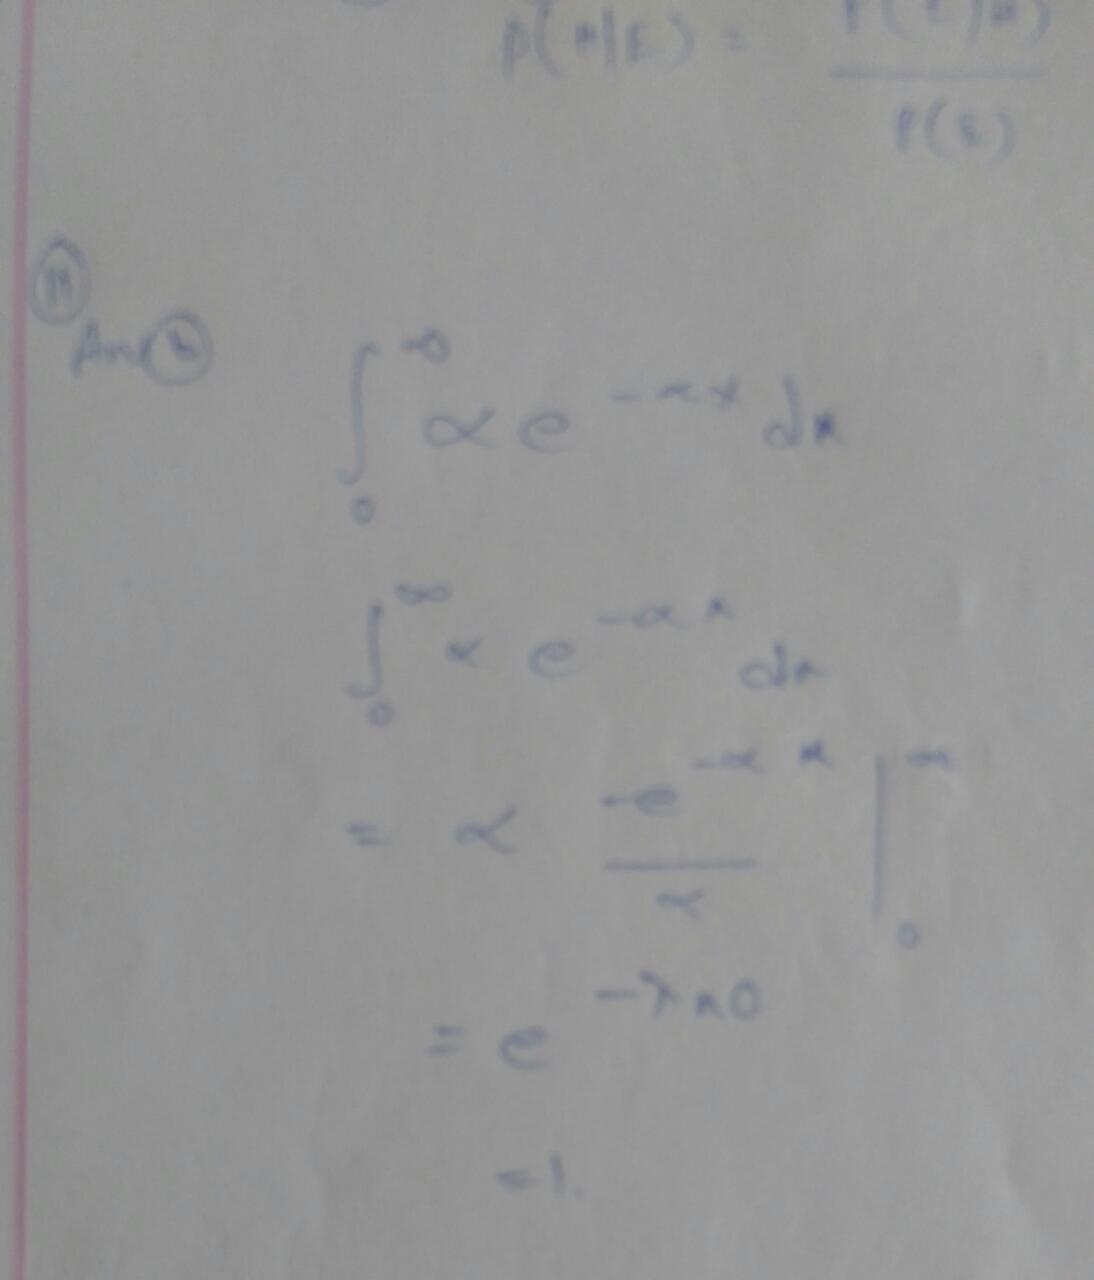 P(H|E) = P(E|H)
P(E)
Ans
∫₀^∞ α e^{-αx} dx
∫₀^∞ α e^{-αx} dx
= α -e^{-αx} / α |₀^∞
= e^{-λ×0}
= 1.